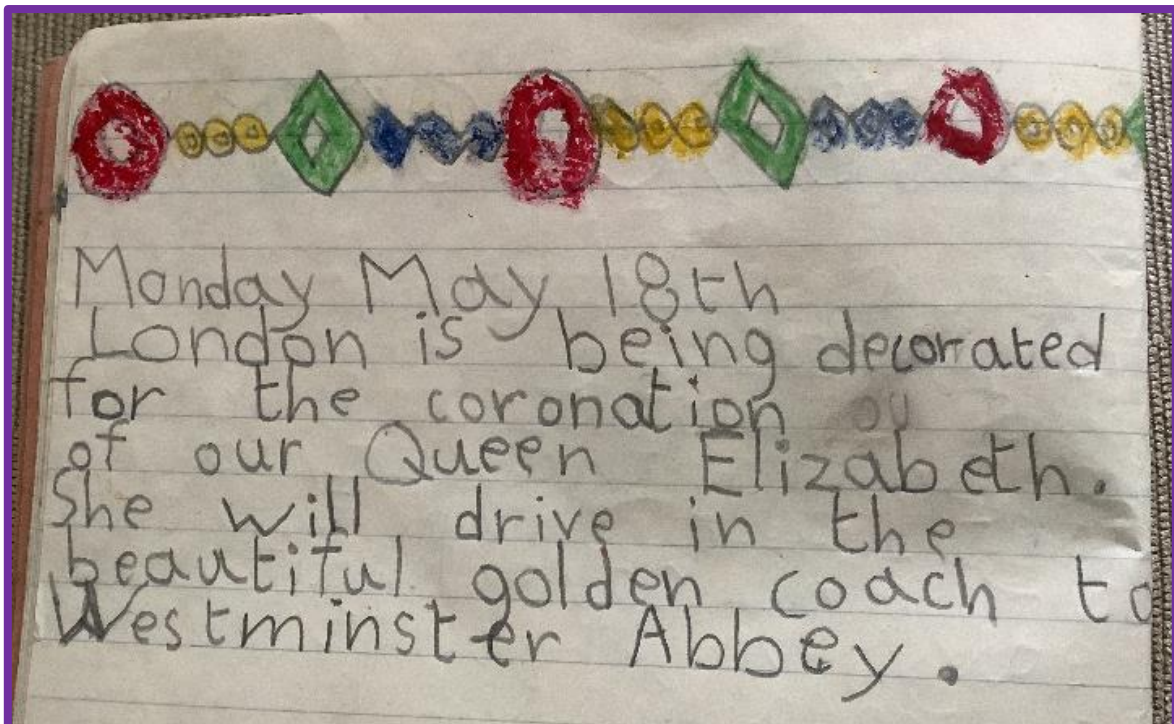 Monday May 18th
London is being decorated
for the coronation ou
of our Queen Elizabeth.
She will drive in the
beautiful golden coach to
Westminster Abbey.